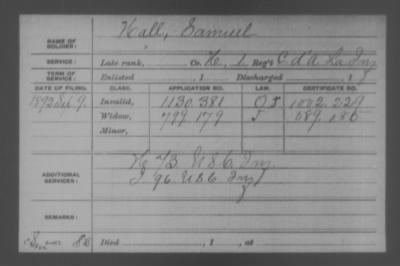 NAME OF SOLDIER: Hall, Samuel
SERVICE: Late rank, Co. K, 1 Reg't C. d'A. La Inf
TERM OF SERVICE: Enlisted , 1 Discharged , 1
DATE OF FILING. CLASS. APPLICATION NO. LAW. CERTIFICATE NO.
1892 Sep. 9. Invalid, 1130.381 1002.229
Widow, 799.179 589.186
Minor,
ADDITIONAL SERVICES: 73 U S C Inf
I 96 U S C Inf
REMARKS:
Died , 1 , at